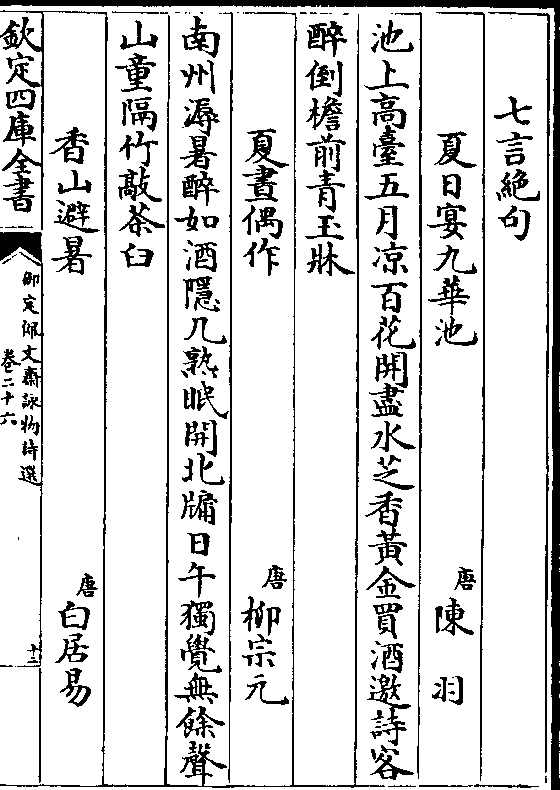 七言絶句
夏日宴九華池
唐 陳羽
池上高臺五月凉百花開盡水芝香黃金買酒邀詩客
醉倒檐前青玉牀
夏晝偶作
唐 柳宗元
南州溽暑醉如酒隱几熟眠開北牖日午獨覺無餘聲
山童隔竹敲茶臼
香山避暑
唐 白居易
欽定四庫全書
御定佩文齋詠物詩選
卷二十六
十二